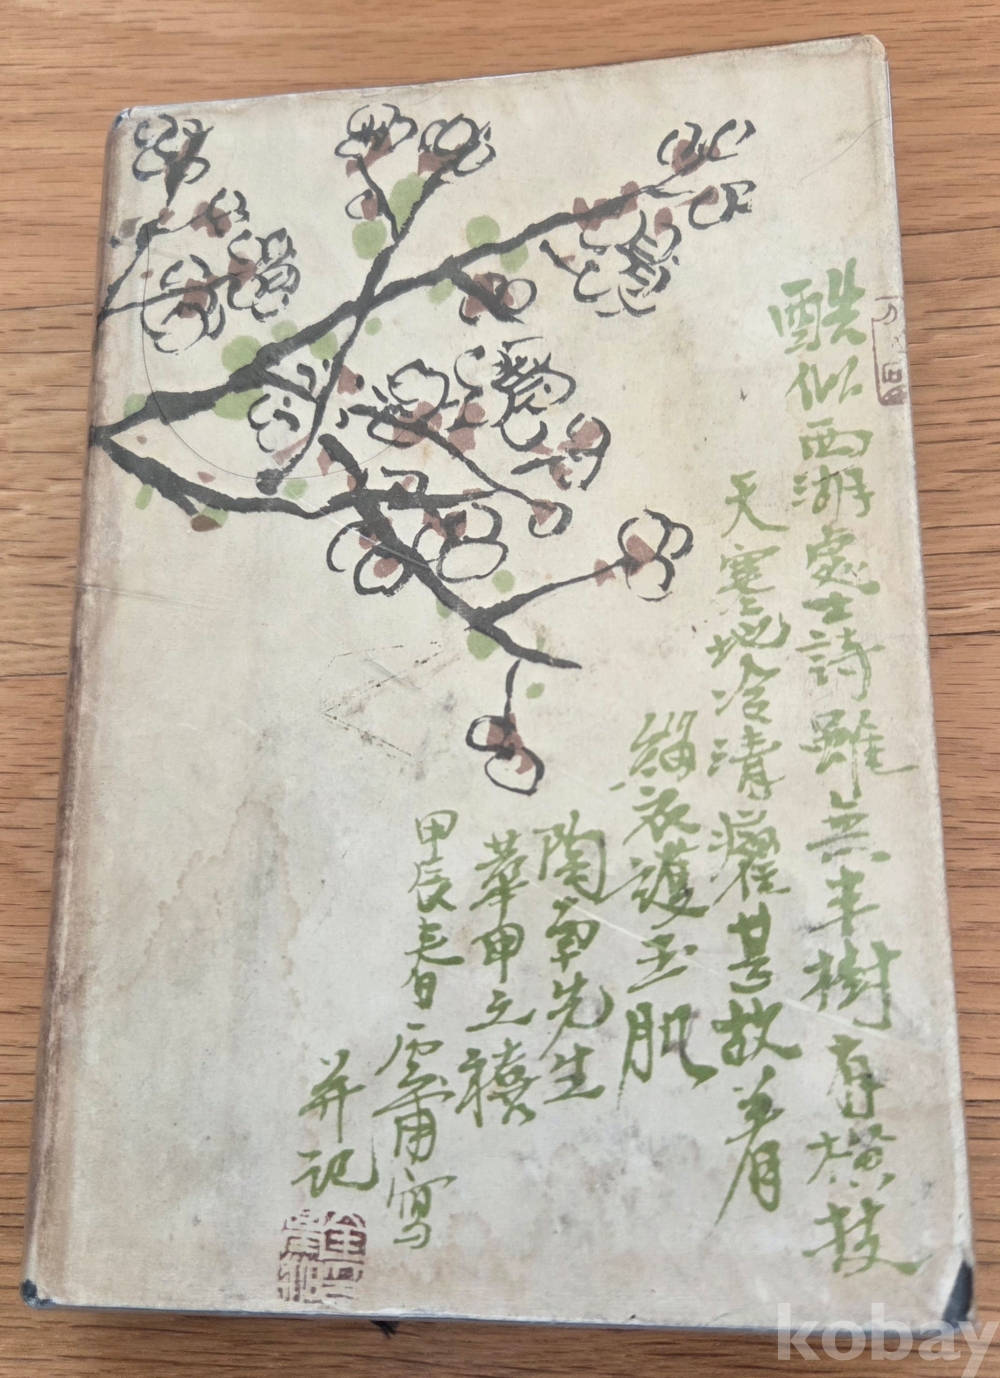 酷似西湖處士詩雖無半樹有橫枝
天寒地冷清癯甚故着
緇衣護玉肌
陶南先生
華甲之禧
甲辰春日 寫
并記
kobay